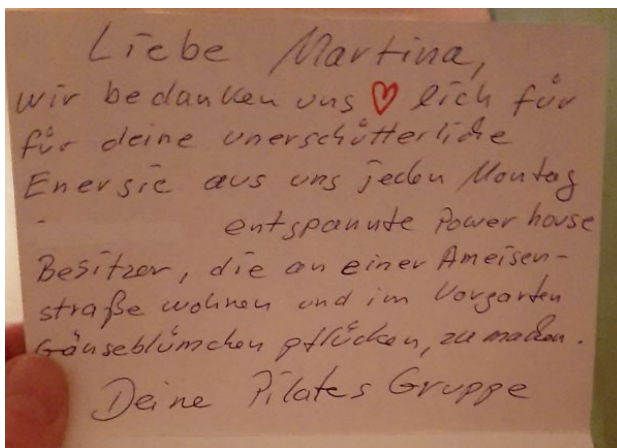 Liebe Martina,
wir bedanken uns ♡lich für
für deine unerschütterliche
Energie aus uns jeden Montag
- entspannte Powerhouse
Besitzer, die an einer Ameisen-
straße wohnen und im Vorgarten
Gänseblümchen pflücken, zu machen.
Deine Pilates Gruppe